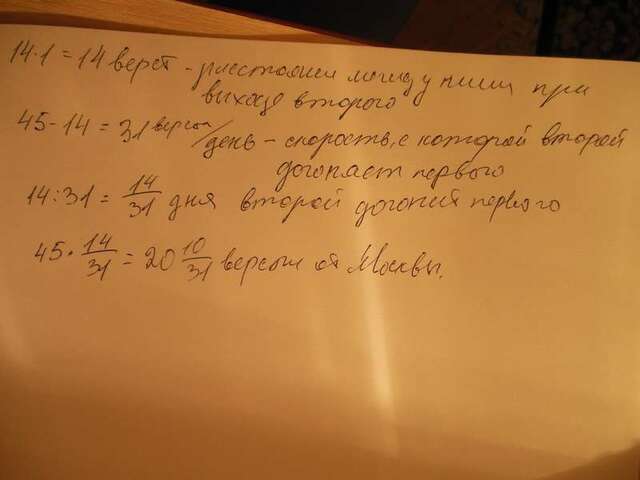 14·1 = 14 верст - расстояние между ними при
выходе второго
45-14 = 31 верста/день - скорость, с которой второй
догоняет первого
14:31 = 14/31 дня второй догонит первого
45·14/31 = 20 10/31 версты от Москвы.